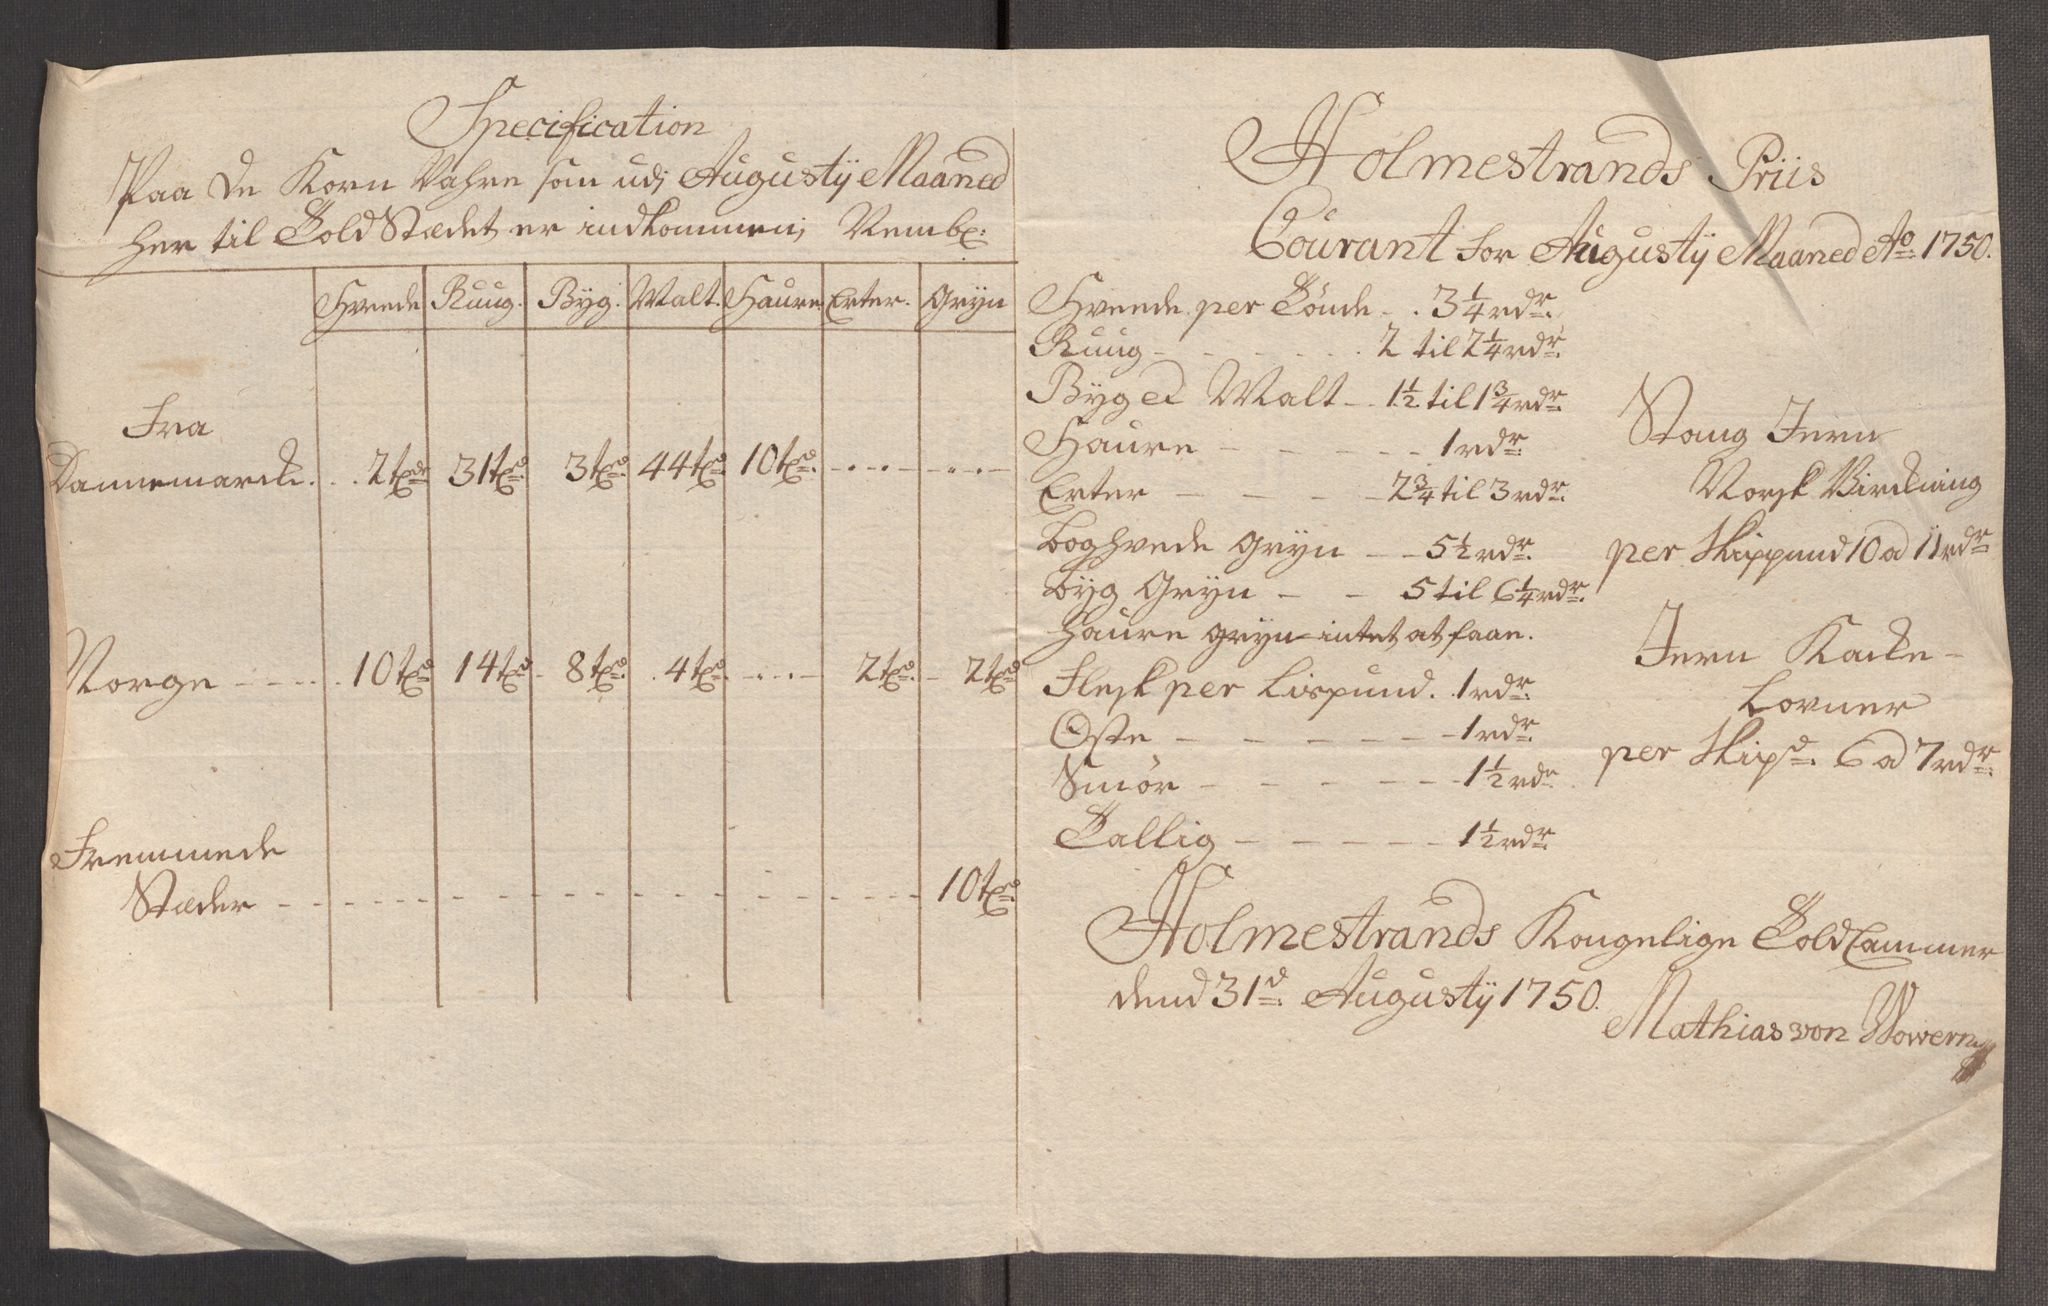 Specification
Paa de Korn Vahre som udj Augustÿ Maaned
her til Told Stædet er indkommen, Nembl:
Hvede Ruug. Byg. Malt. Haure Erter. Grÿn
Fra
Dannemarck. . . 2 tdr 31 tdr 3 tdr 44 tdr 10 tdr. - . . . - - . . . -
Norge - - - - . 10 tdr 14 tdr - 8 tdr. . 4 tdr - . . . - 2 tdr. - 2 tdr
Fremmede
Stæder - - - - - - - - - - - - - - - - - - - - 10 tdr.
Holmestrands Priis
Courant for Augustÿ Maaned Ao: 1750.
Hveede per Tönde - . 3 1/4 rdr.
Ruug - - - - - - 2 til 2 1/4 rdr.
Bÿg ed Malt - - 1 1/2 til 1 3/4 rdr.
Haure - - - - - 1 rdr.
Erter - - - - 2 3/4 til 3 rdr.
boghvede grÿn - - 5 1/2 rdr.
bÿg Grÿn - - 5 til 6 1/4 rdr.
haure grÿn intet at faae.
Flesk per Lispund. . 1 rdr.
Oste - - - - - - - 1 rdr.
Smör - - - - - - 1 1/2 rdr
Tallig - - - - - - 1 1/2 rdr.
Stang Jern
Norsk Virckning
per Skippund 10 a 11 rdr
Jern Kacke-
Lovner
per Skipd. 6 a 7 rdr.
Holmestrands Kongelige Told Cammer
dend 31d. Augustÿ 1750.
Mathias von Wowern